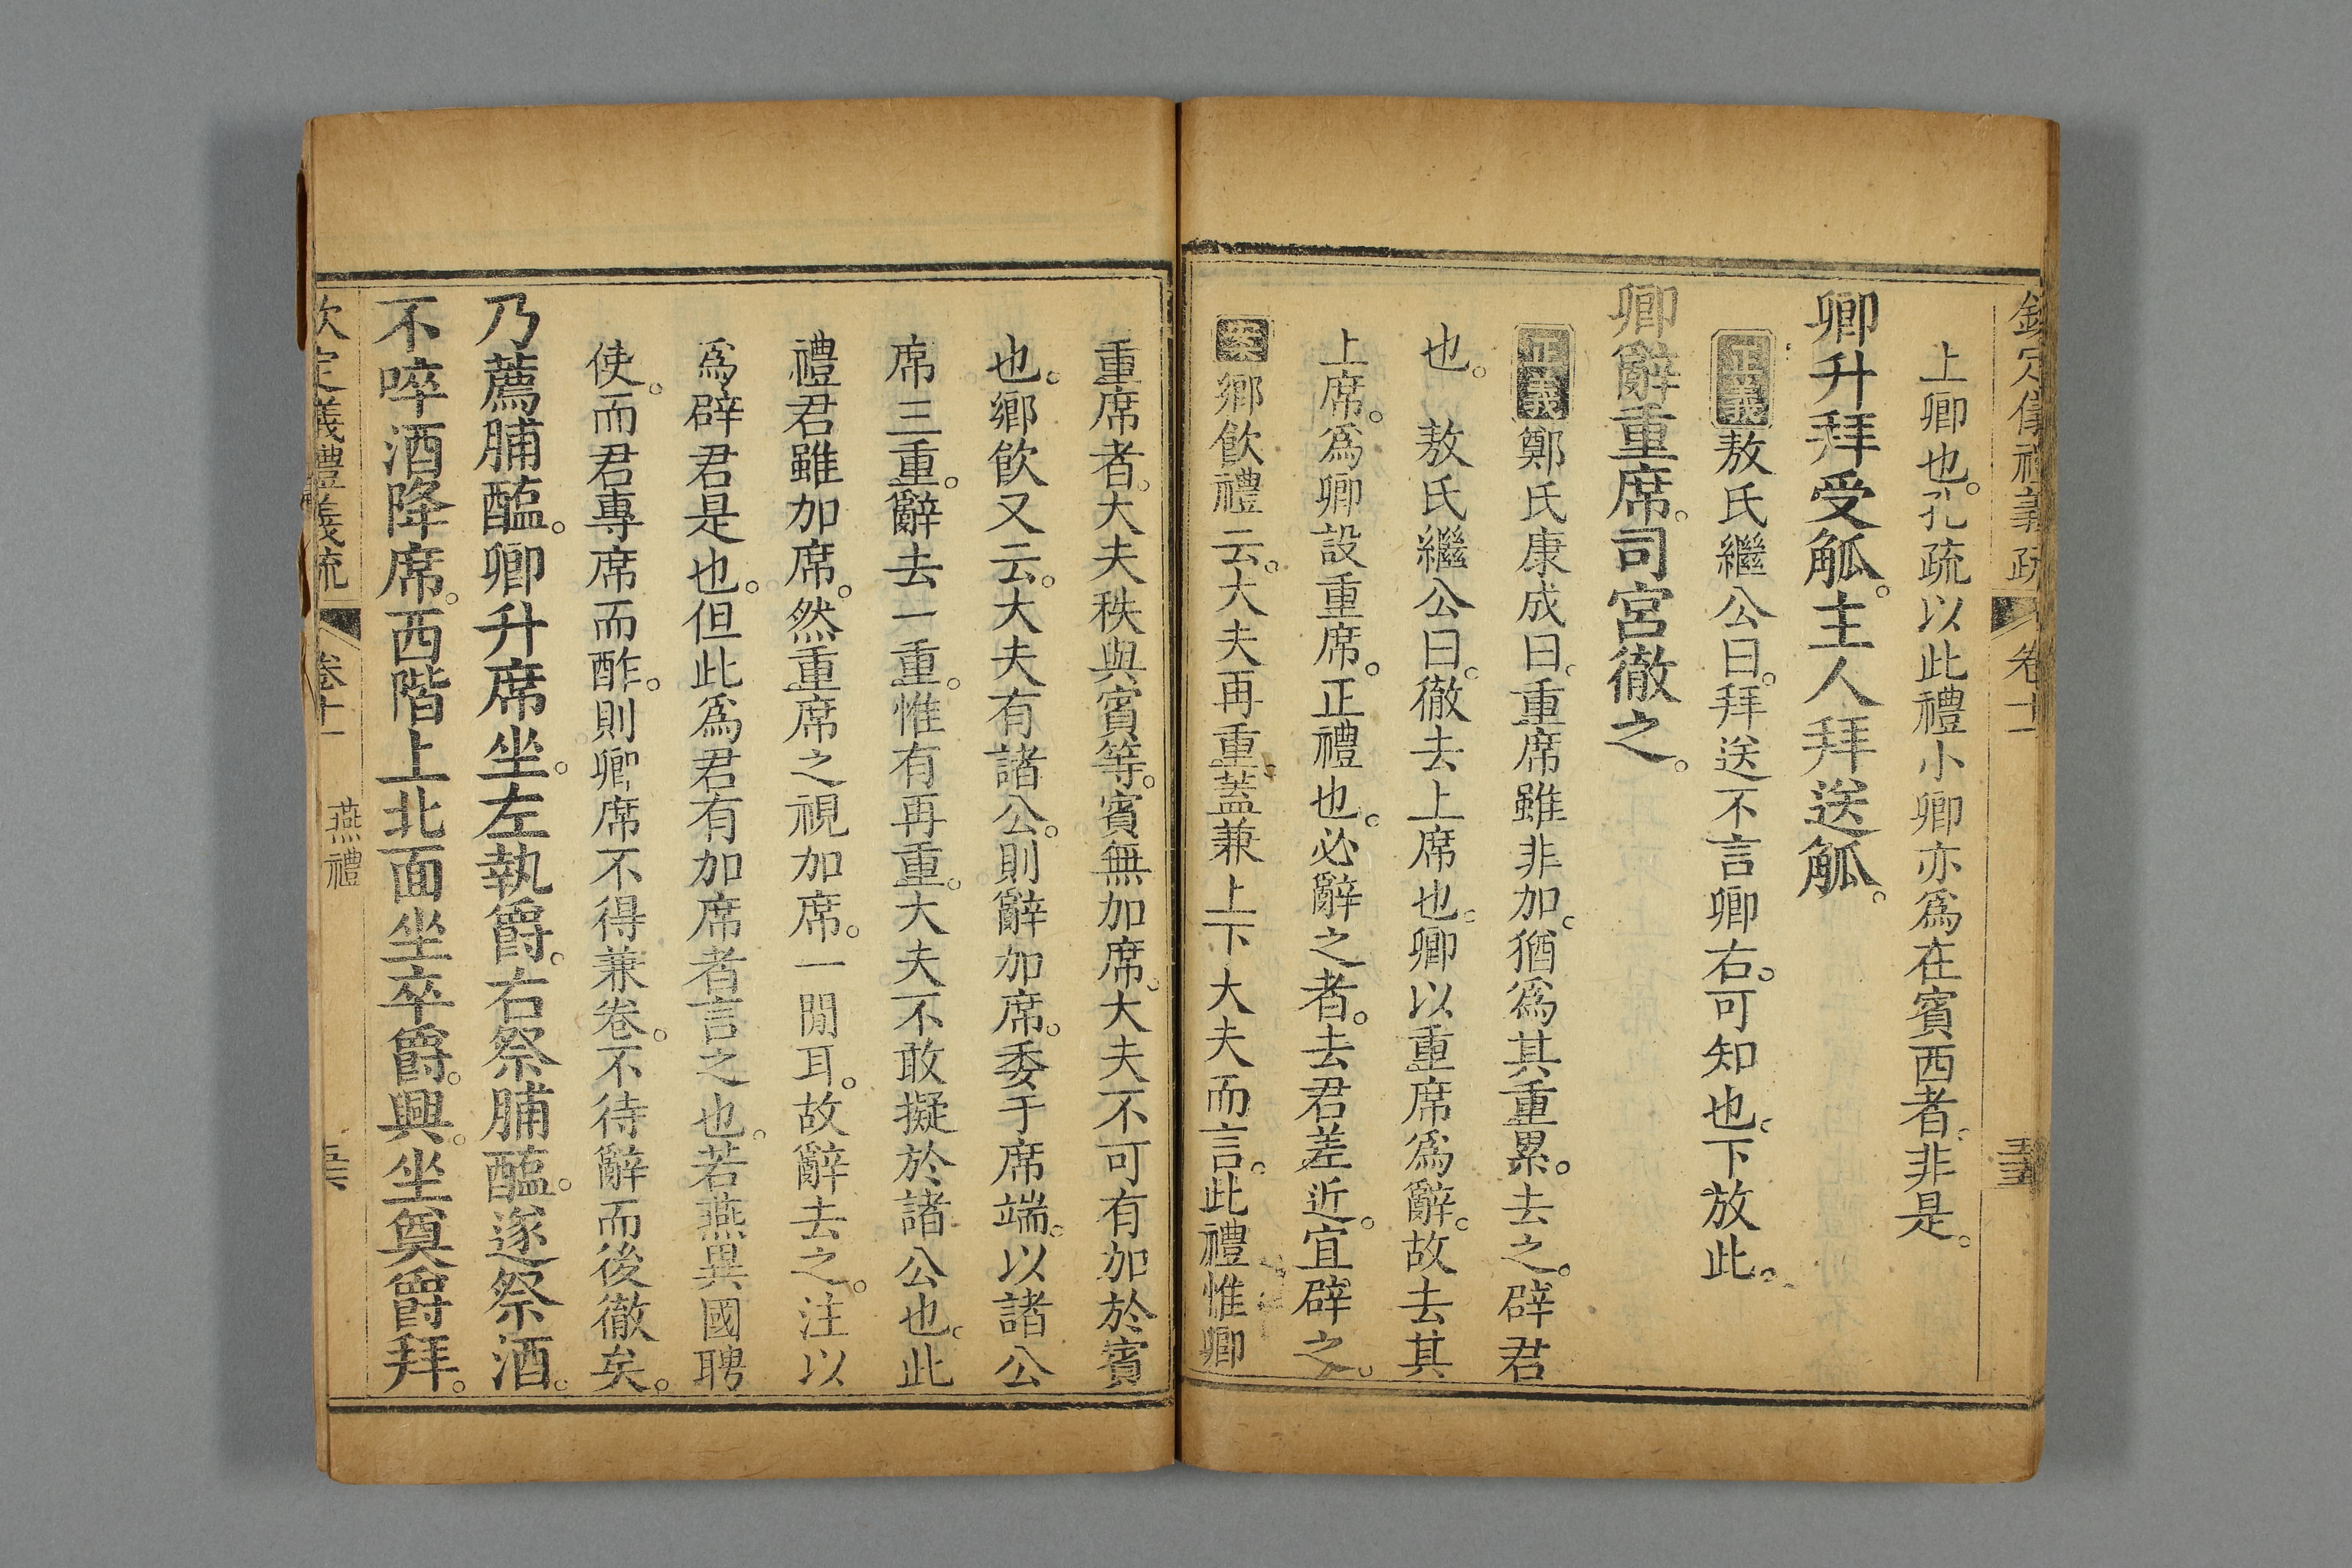 欽定儀禮義疏 卷十一
上卿也。孔疏以此禮小卿亦爲在賓西者。非是。
卿升拜受觚。主人拜送觚。
正義敖氏繼公曰。拜送不言卿右。可知也。下放此。
卿辭重席。司宮徹之。
正義鄭氏康成曰。重席雖非加。猶爲其重累。去之。辟君
也。 敖氏繼公曰。徹去上席也。卿以重席爲辭。故去其
上席。爲卿設重席。正禮也。必辭之者。去君差近。宜辟之。
案鄉飲禮云。大夫再重。蓋兼上下大夫而言。此禮惟卿
重席者。大夫秩與賓等。賓無加席。大夫不可有加於賓
也。鄉飲又云。大夫有諸公。則辭加席。委于席端。以諸公
席三重。辭去一重。惟有再重。大夫不敢擬於諸公也。此
禮君雖加席。然重席之視加席。一閒耳。故辭去之。注以
爲辟君是也。但此爲君有加席者言之也。若燕異國聘
使。而君專席而酢。則卿席不得兼卷。不待辭而後徹矣。
乃薦脯醢。卿升席坐。左執爵。右祭脯醢。遂祭酒。
不啐酒。降席。西階上北面坐卒爵。興。坐奠爵拜。
欽定義禮義疏 卷十一 燕禮